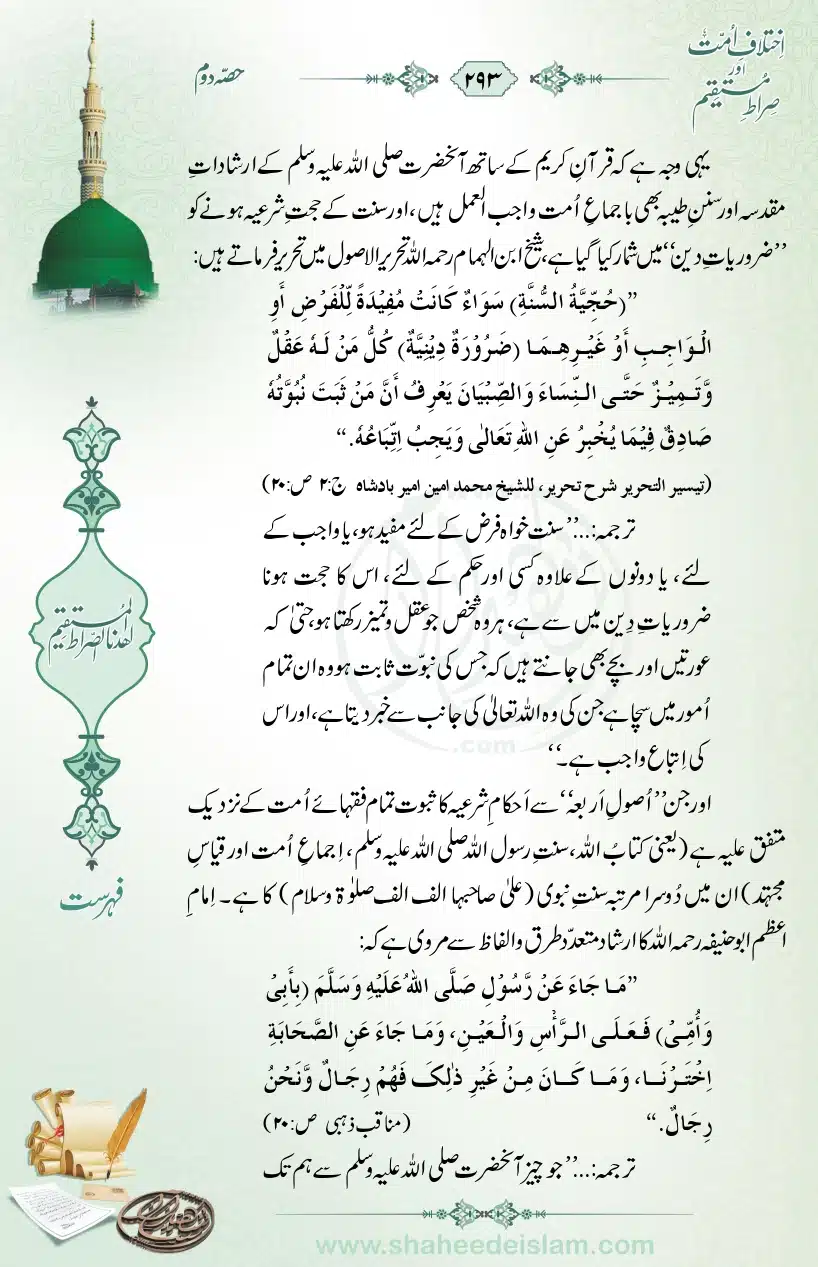 اِختلافِ اُمّت
اور
صِراطِ مُستقیم
۲۹۳
حصّہ دوم
یہی وجہ ہے کہ قرآنِ کریم کے ساتھ آنحضرت صلی اللہ علیہ وسلم کے ارشاداتِ
مقدسہ اور سننِ طیبہ بھی باجماعِ اُمت واجب العمل ہیں، اور سنت کے حجتِ شرعیہ ہونے کو
’’ضروریاتِ دین‘‘ میں شمار کیا گیا ہے، شیخ ابن الہمام رحمہ اللہ تحریر الاصول میں تحریر فرماتے ہیں:
”(حُجِّيَّةُ السُّنَّةِ) سَوَاءٌ كَانَتْ مُفِيْدَةً لِّلْفَرْضِ أَوِ
الْوَاجِبِ أَوْ غَيْرِهِمَا (ضَرُوْرَةٌ دِيْنِيَّةٌ) كُلُّ مَنْ لَهٗ عَقْلٌ
وَّتَمِيْزٌ حَتَّى النِّسَاءَ وَالصِّبْيَانَ يَعْرِفُ أَنَّ مَنْ ثَبَتَ نُبُوَّتُهٗ
صَادِقٌ فِيْمَا يُخْبِرُ عَنِ اللهِ تَعَالٰى وَيَجِبُ اِتِّبَاعُهٗ.“
(تیسیر التحریر شرح تحریر، للشیخ محمد امین امیر بادشاہ ج:۲ ص:۲۰)
ترجمہ:...’’سنت خواہ فرض کے لئے مفید ہو، یا واجب کے
لئے، یا دونوں کے علاوہ کسی اور حکم کے لئے، اس کا حجت ہونا
ضروریاتِ دِین میں سے ہے، ہر وہ شخص جو عقل و تمیز رکھتا ہو، حتیٰ کہ
عورتیں اور بچے بھی جانتے ہیں کہ جس کی نبوّت ثابت ہو وہ ان تمام
اُمور میں سچا ہے جن کی وہ اللہ تعالیٰ کی جانب سے خبر دیتا ہے، اور اس
کی اِتباع واجب ہے۔‘‘
اور جن ’’اُصولِ اَربعہ‘‘ سے اَحکامِ شرعیہ کا ثبوت تمام فقہائے اُمت کے نزدیک
متفق علیہ ہے (یعنی کتابُ اللہ، سنتِ رسول اللہ صلی اللہ علیہ وسلم، اِجماعِ اُمت اور قیاسِ
مجتہد) ان میں دُوسرا مرتبہ سنتِ نبوی (علیٰ صاحبہا الف الف صلوٰۃ وسلام) کا ہے۔ اِمامِ
اعظم ابوحنیفہ رحمہ اللہ کا ارشاد متعدّد طرق و الفاظ سے مروی ہے کہ:
”مَا جَاءَ عَنْ رَّسُوْلِ صَلَّى اللهُ عَلَيْهِ وَسَلَّمَ (بِأَبِيْ
وَأُمِّيْ) فَعَلَى الرَّأْسِ وَالْعَيْنِ، وَمَا جَاءَ عَنِ الصَّحَابَةِ
اِخْتَرْنَا، وَمَا كَانَ مِنْ غَيْرِ ذٰلِكَ فَهُمْ رِجَالٌ وَّنَحْنُ
رِجَالٌ.“ (مناقب ذہبی ص:۲۰)
ترجمہ:...’’جو چیز آنحضرت صلی اللہ علیہ وسلم سے ہم تک
اهدنا الصّراط المُستقیم
فہرست
.com
www.shaheedeislam.com